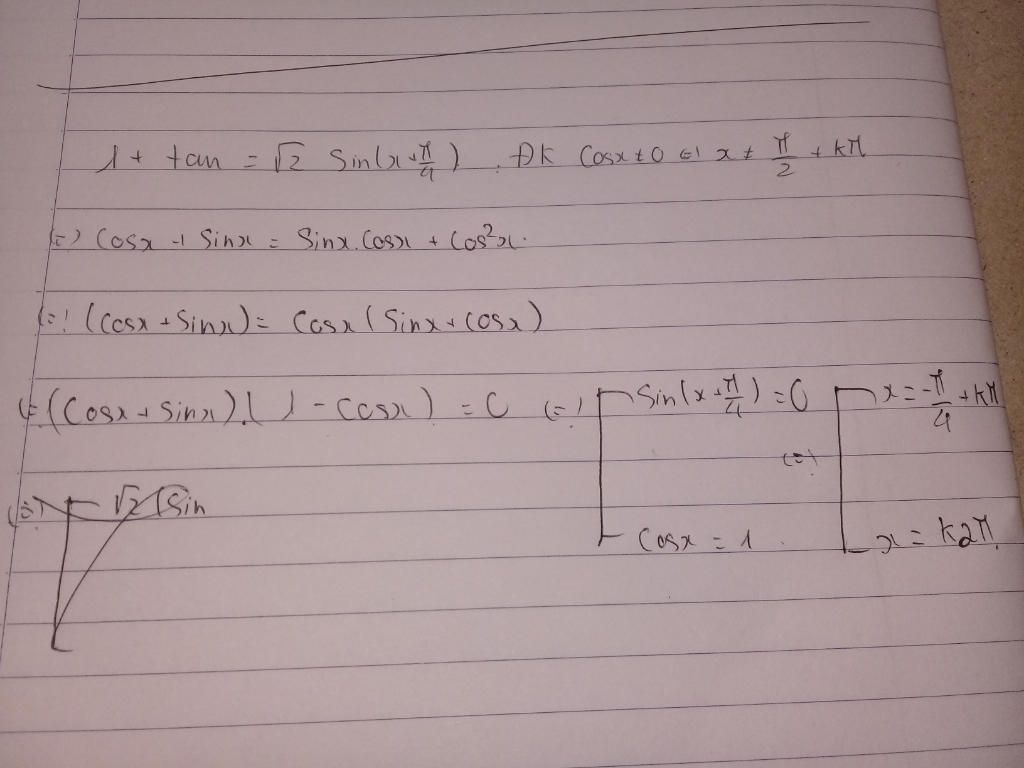 1 + tan = √2 Sin(x+π/4). ĐK Cosx ≠ 0 (=) x ≠ π/2 + kπ
(=) Cosx + Sinx = Sinx.Cosx + Cos²x.
(=) (Cosx + Sinx) = Cosx (Sinx + Cosx)
(=) (Cosx + Sinx).(1 - Cosx) = 0 (=) [ Sin(x+π/4) = 0 (=) [ x = -π/4 + kπ
Cosx = 1 x = k2π.
(=) [ √2 (Sin